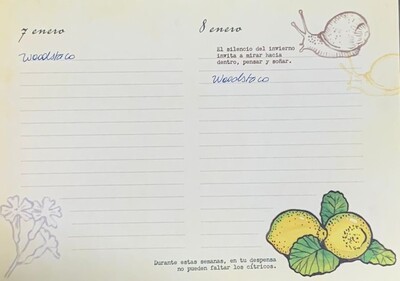 7 enero
Woodstaco
8 enero
El silencio del invierno
invita a mirar hacia
dentro, pensar y soñar.
Woodstaco
Durante estas semanas, en tu despensa
no pueden faltar los cítricos.